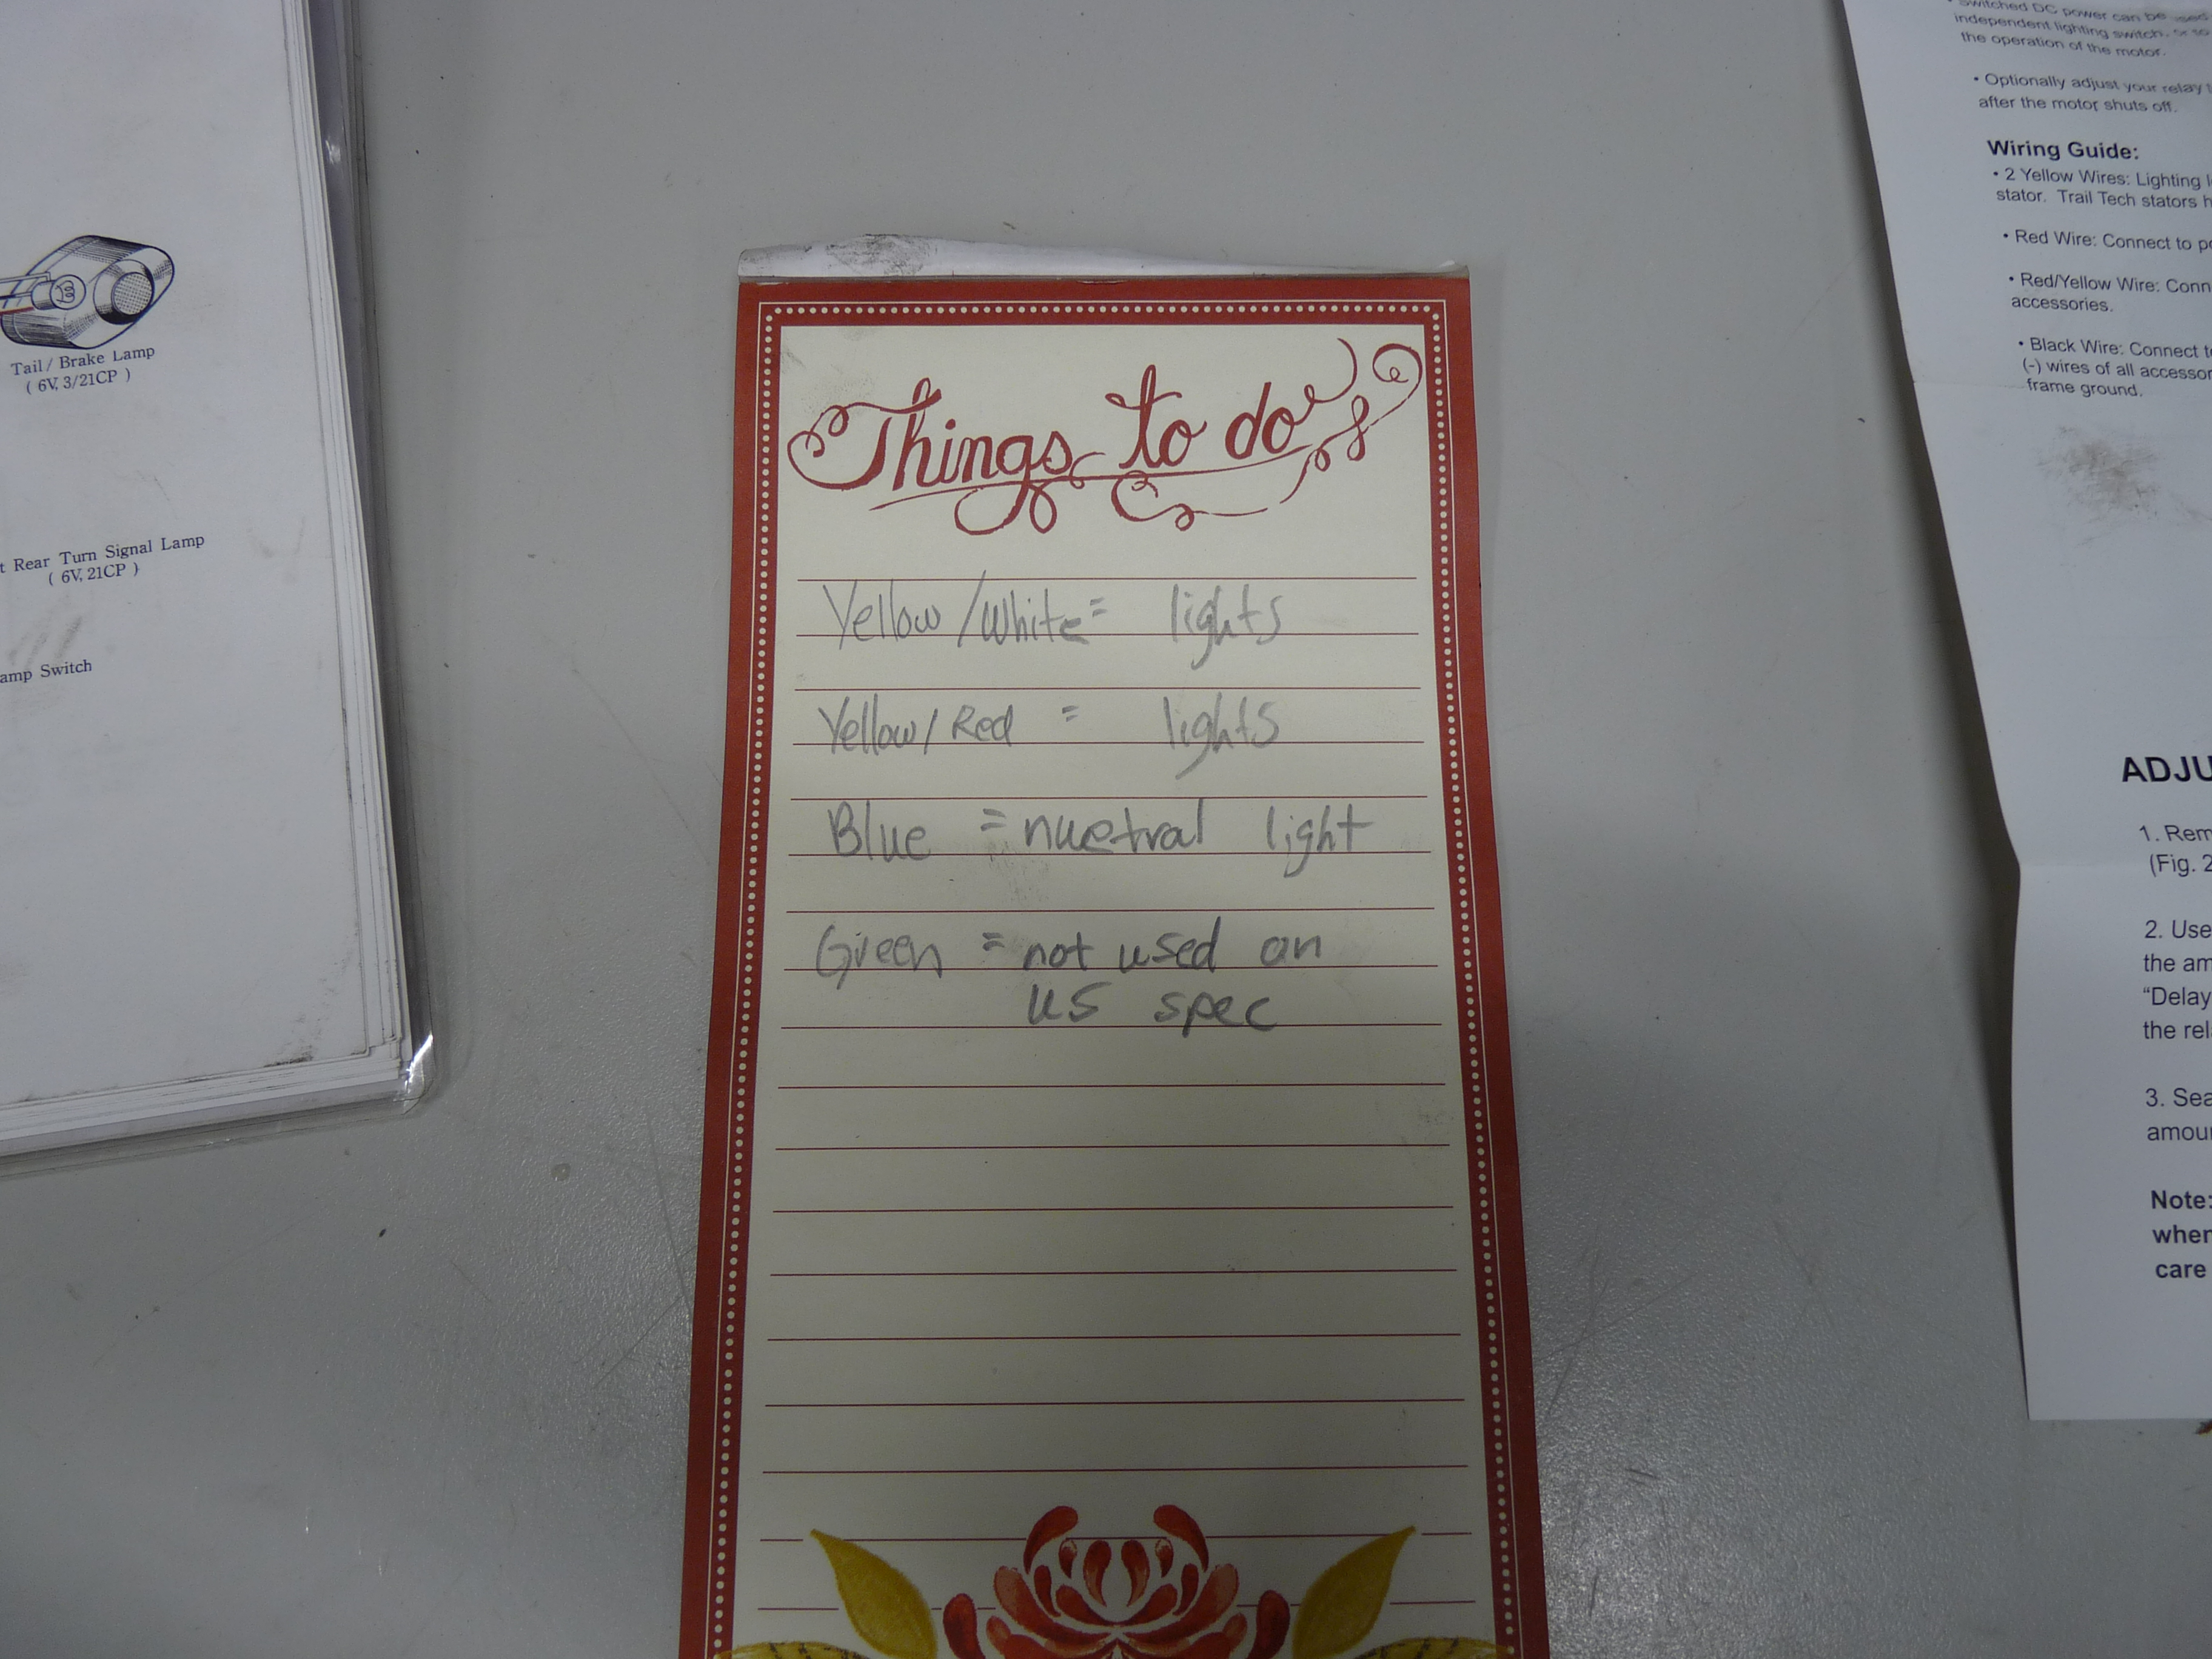 Tail / Brake Lamp
( 6V, 3/21CP )
Rear Turn Signal Lamp
( 6V, 21CP )
Switch
Things to do
Yellow/White = lights
Yellow/Red = lights
Blue = nuetral light
Green = not used on
US spec
Switched DC power can be used
independent lighting switch, or to
the operation of the motor.
• Optionally adjust your relay
after the motor shuts off.
Wiring Guide:
• 2 Yellow Wires: Lighting
stator. Trail Tech stators
• Red Wire: Connect to
• Red/Yellow Wire:
accessories.
• Black Wire: Connect
(-) wires of all
frame ground.
1.
(Fig. 2
2. Use
the
"Delay
the
3.
Note:
when
care